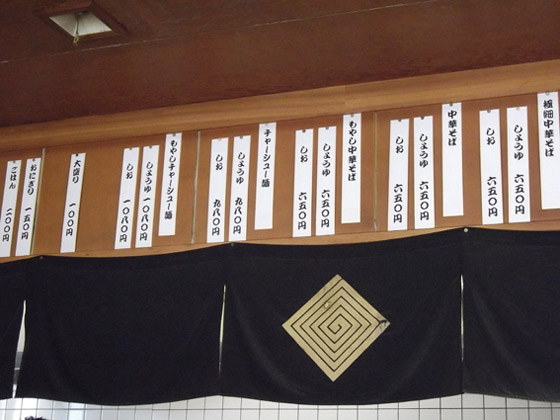 極細中華そば
しょうゆ 六五〇円
しお 六五〇円
中華そば
しょうゆ 六五〇円
しお 六五〇円
もやし中華そば
しょうゆ 六五〇円
しお 六五〇円
チャーシュー麺
しょうゆ 九八〇円
しお 九八〇円
もやしチャーシュー麺
しょうゆ 一〇八〇円
しお 一〇八〇円
大盛り 一〇〇円
おにぎり 一五〇円
ごはん 二〇〇円